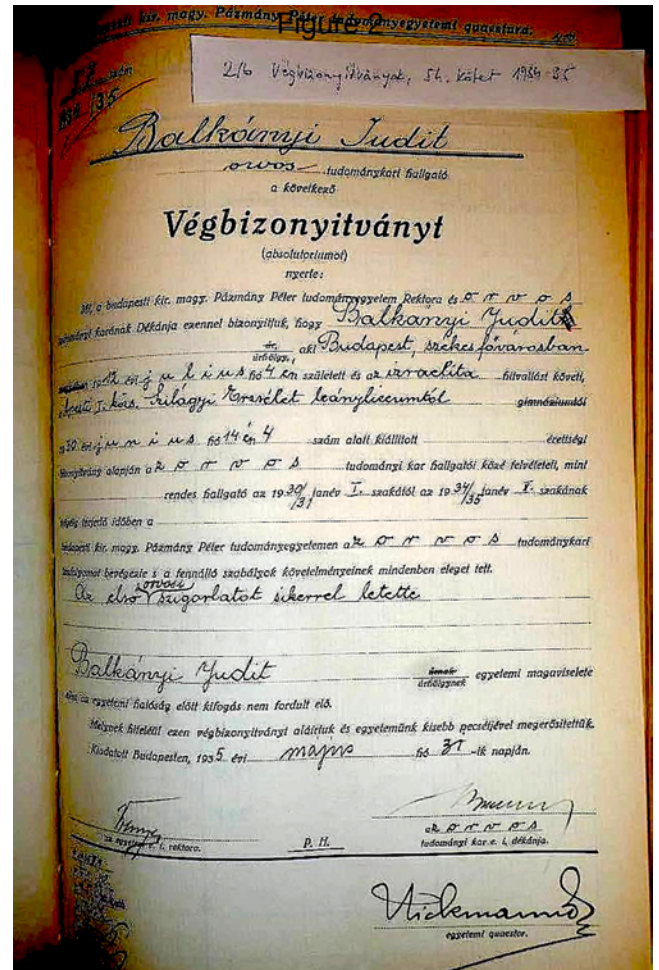 kir. magy. Pázmány Péter tudományegyetemi quaestura.
Figure 2
2/b Végbizonyítványok, 54. kötet 1934-35
Balkányi Judit
orvos tudománykari hallgató
a következő
Végbizonyitványt
(absolutoriumot)
nyerte:
Mi, a budapesti kir. magy. Pázmány Péter tudományegyetem Rektora és o r v o s
tudományi karának Dékánja ezennel bizonyítjuk, hogy Balkányi Judit
úr, úrhölgy, aki Budapest, székesfővárosban
1912 évi j u l i u s hó 4 én született és az izraelita hitvallást követi,
I. ker. Szilágyi Erzsébet leányliceumtól gimnáziumtól
30 évi j u n i u s hó 14 én 4 szám alatt kiállított érettségi
bizonyitvány alapján a z o r v o s tudományi kar hallgatói közé felvétetett, mint
rendes hallgató az 1930/31 tanév I. szakától az 1934/35 tanév II. szakának
végéig terjedő időben a
budapesti kir. magy. Pázmány Péter tudományegyetemen a z o r v o s tudománykari
tanfolyamot bevégezte s a fennálló szabályok követelményeinek mindenben eleget tett.
Az első orvosi szigorlatot sikerrel letette
Balkányi Judit úrnak úrhölgynek egyetemi magaviselete
ellen az egyetemi hatóság előtt kifogás nem fordult elő.
Melynek hiteléül ezen végbizonyitványt aláirtuk és egyetemünk kisebb pecsétjével megerősítettük.
Kiadatott Budapesten, 1935 évi május hó 31 -ik napján.
az egyetem e. i. rektora.
P. H.
az o r v o s
tudományi kar e. i. dékánja.
egyetemi quaestor.